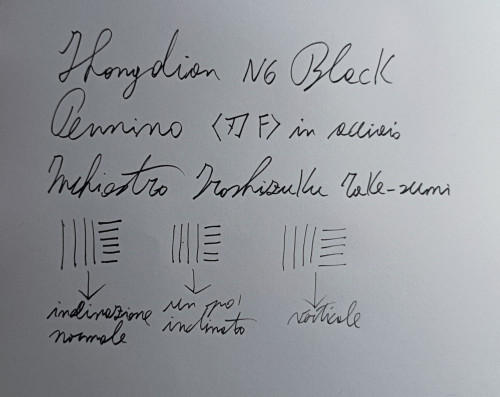 Jhongdian N6 Black
Pennino <刀 F> in acciaio
Inchiostro Iroshizuku Take-sumi
inclinazione normale
un po' inclinato
verticale